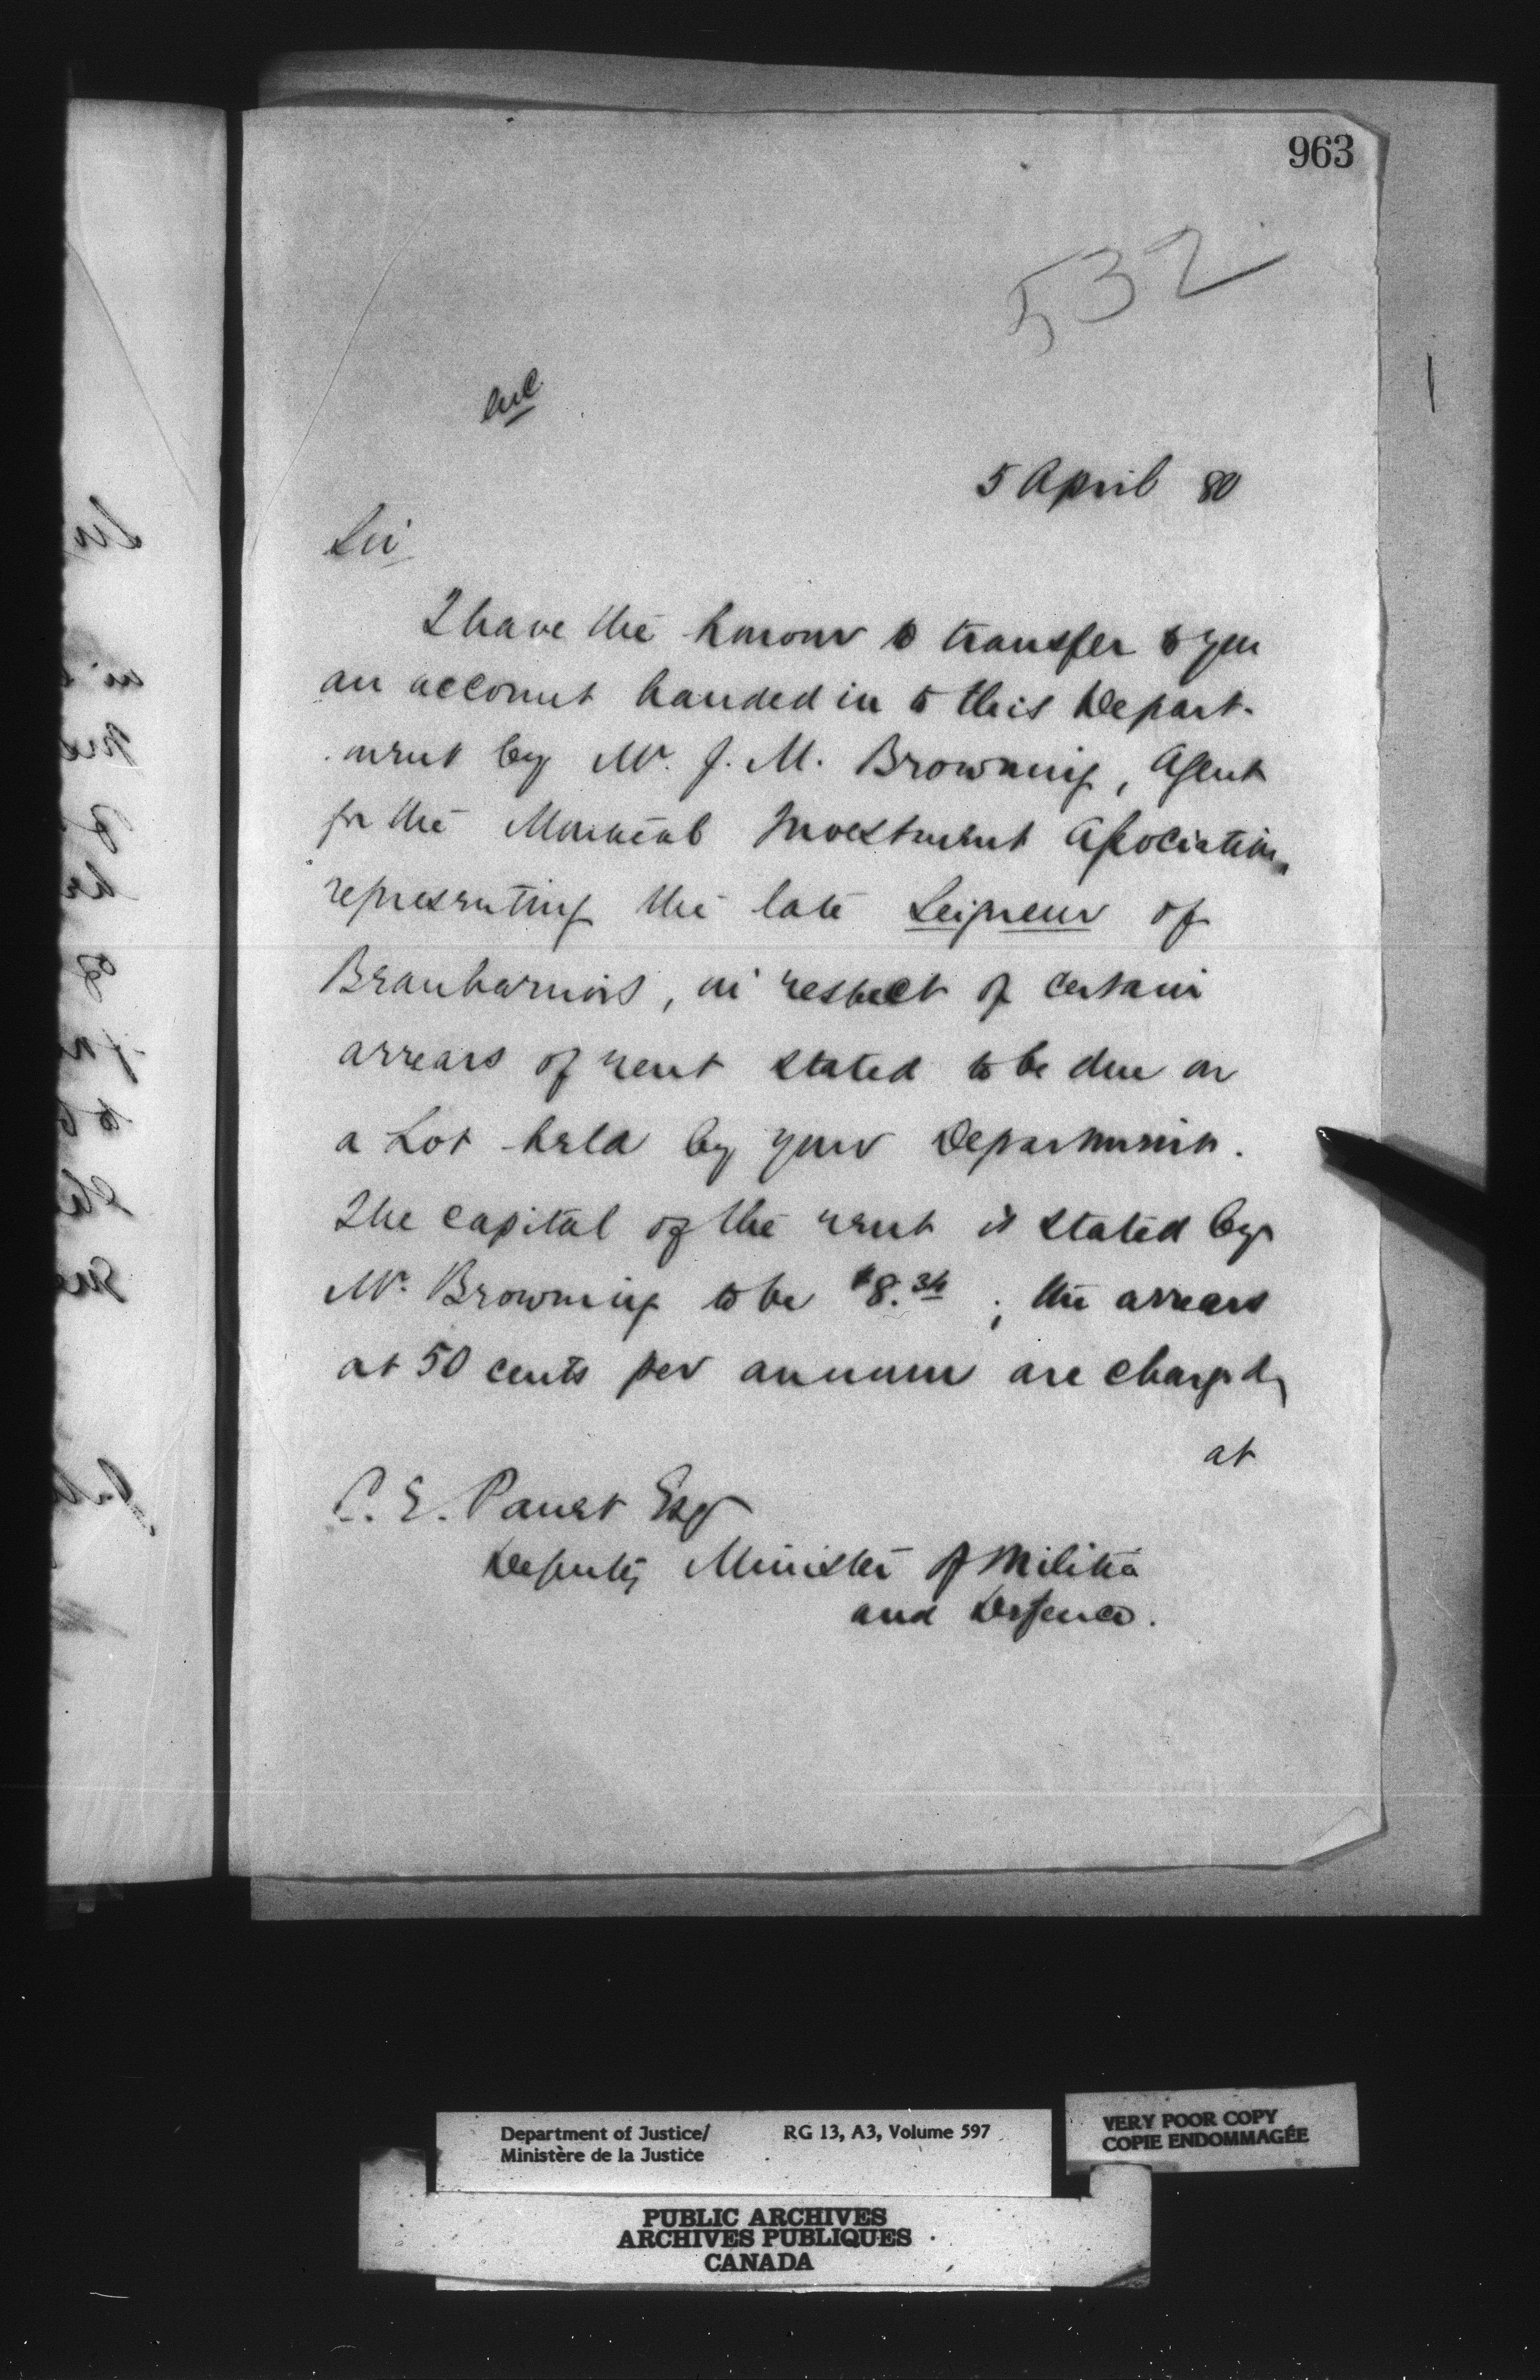 963
532
encl
5 April 80
Sir
I have the honour to transfer to you
an account handed in to this Depart-
ment by Mr. J. M. Browning, Agent
for the Montreal Investment Association,
representing the late Seigneur of
Beauharnois, in respect of certain
arrears of rent stated to be due on
a Lot held by your Department.
The capital of the rent is stated by
Mr. Browning to be $8.34 ; the arrears
at 50 cents per annum are charged,
at
C. E. Panet Esq
Deputy Minister of Militia
and Defence.
Department of Justice/ RG 13, A3, Volume 597
Ministère de la Justice
VERY POOR COPY
COPIE ENDOMMAGÉE
PUBLIC ARCHIVES
ARCHIVES PUBLIQUES
CANADA